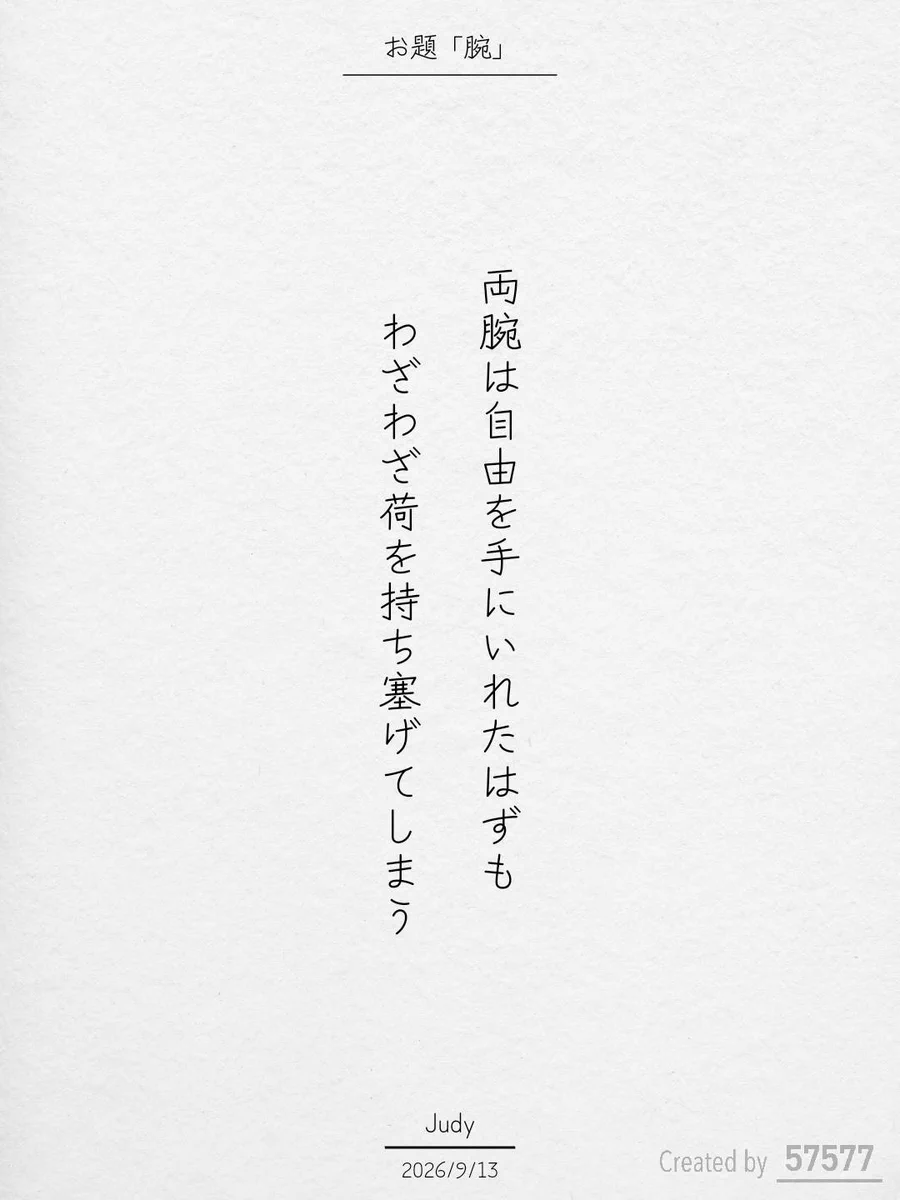 お題「腕」
両腕は自由を手にいれたはずも
わざわざ荷を持ち塞げてしまう
Judy
2026/9/13
Created by 57577